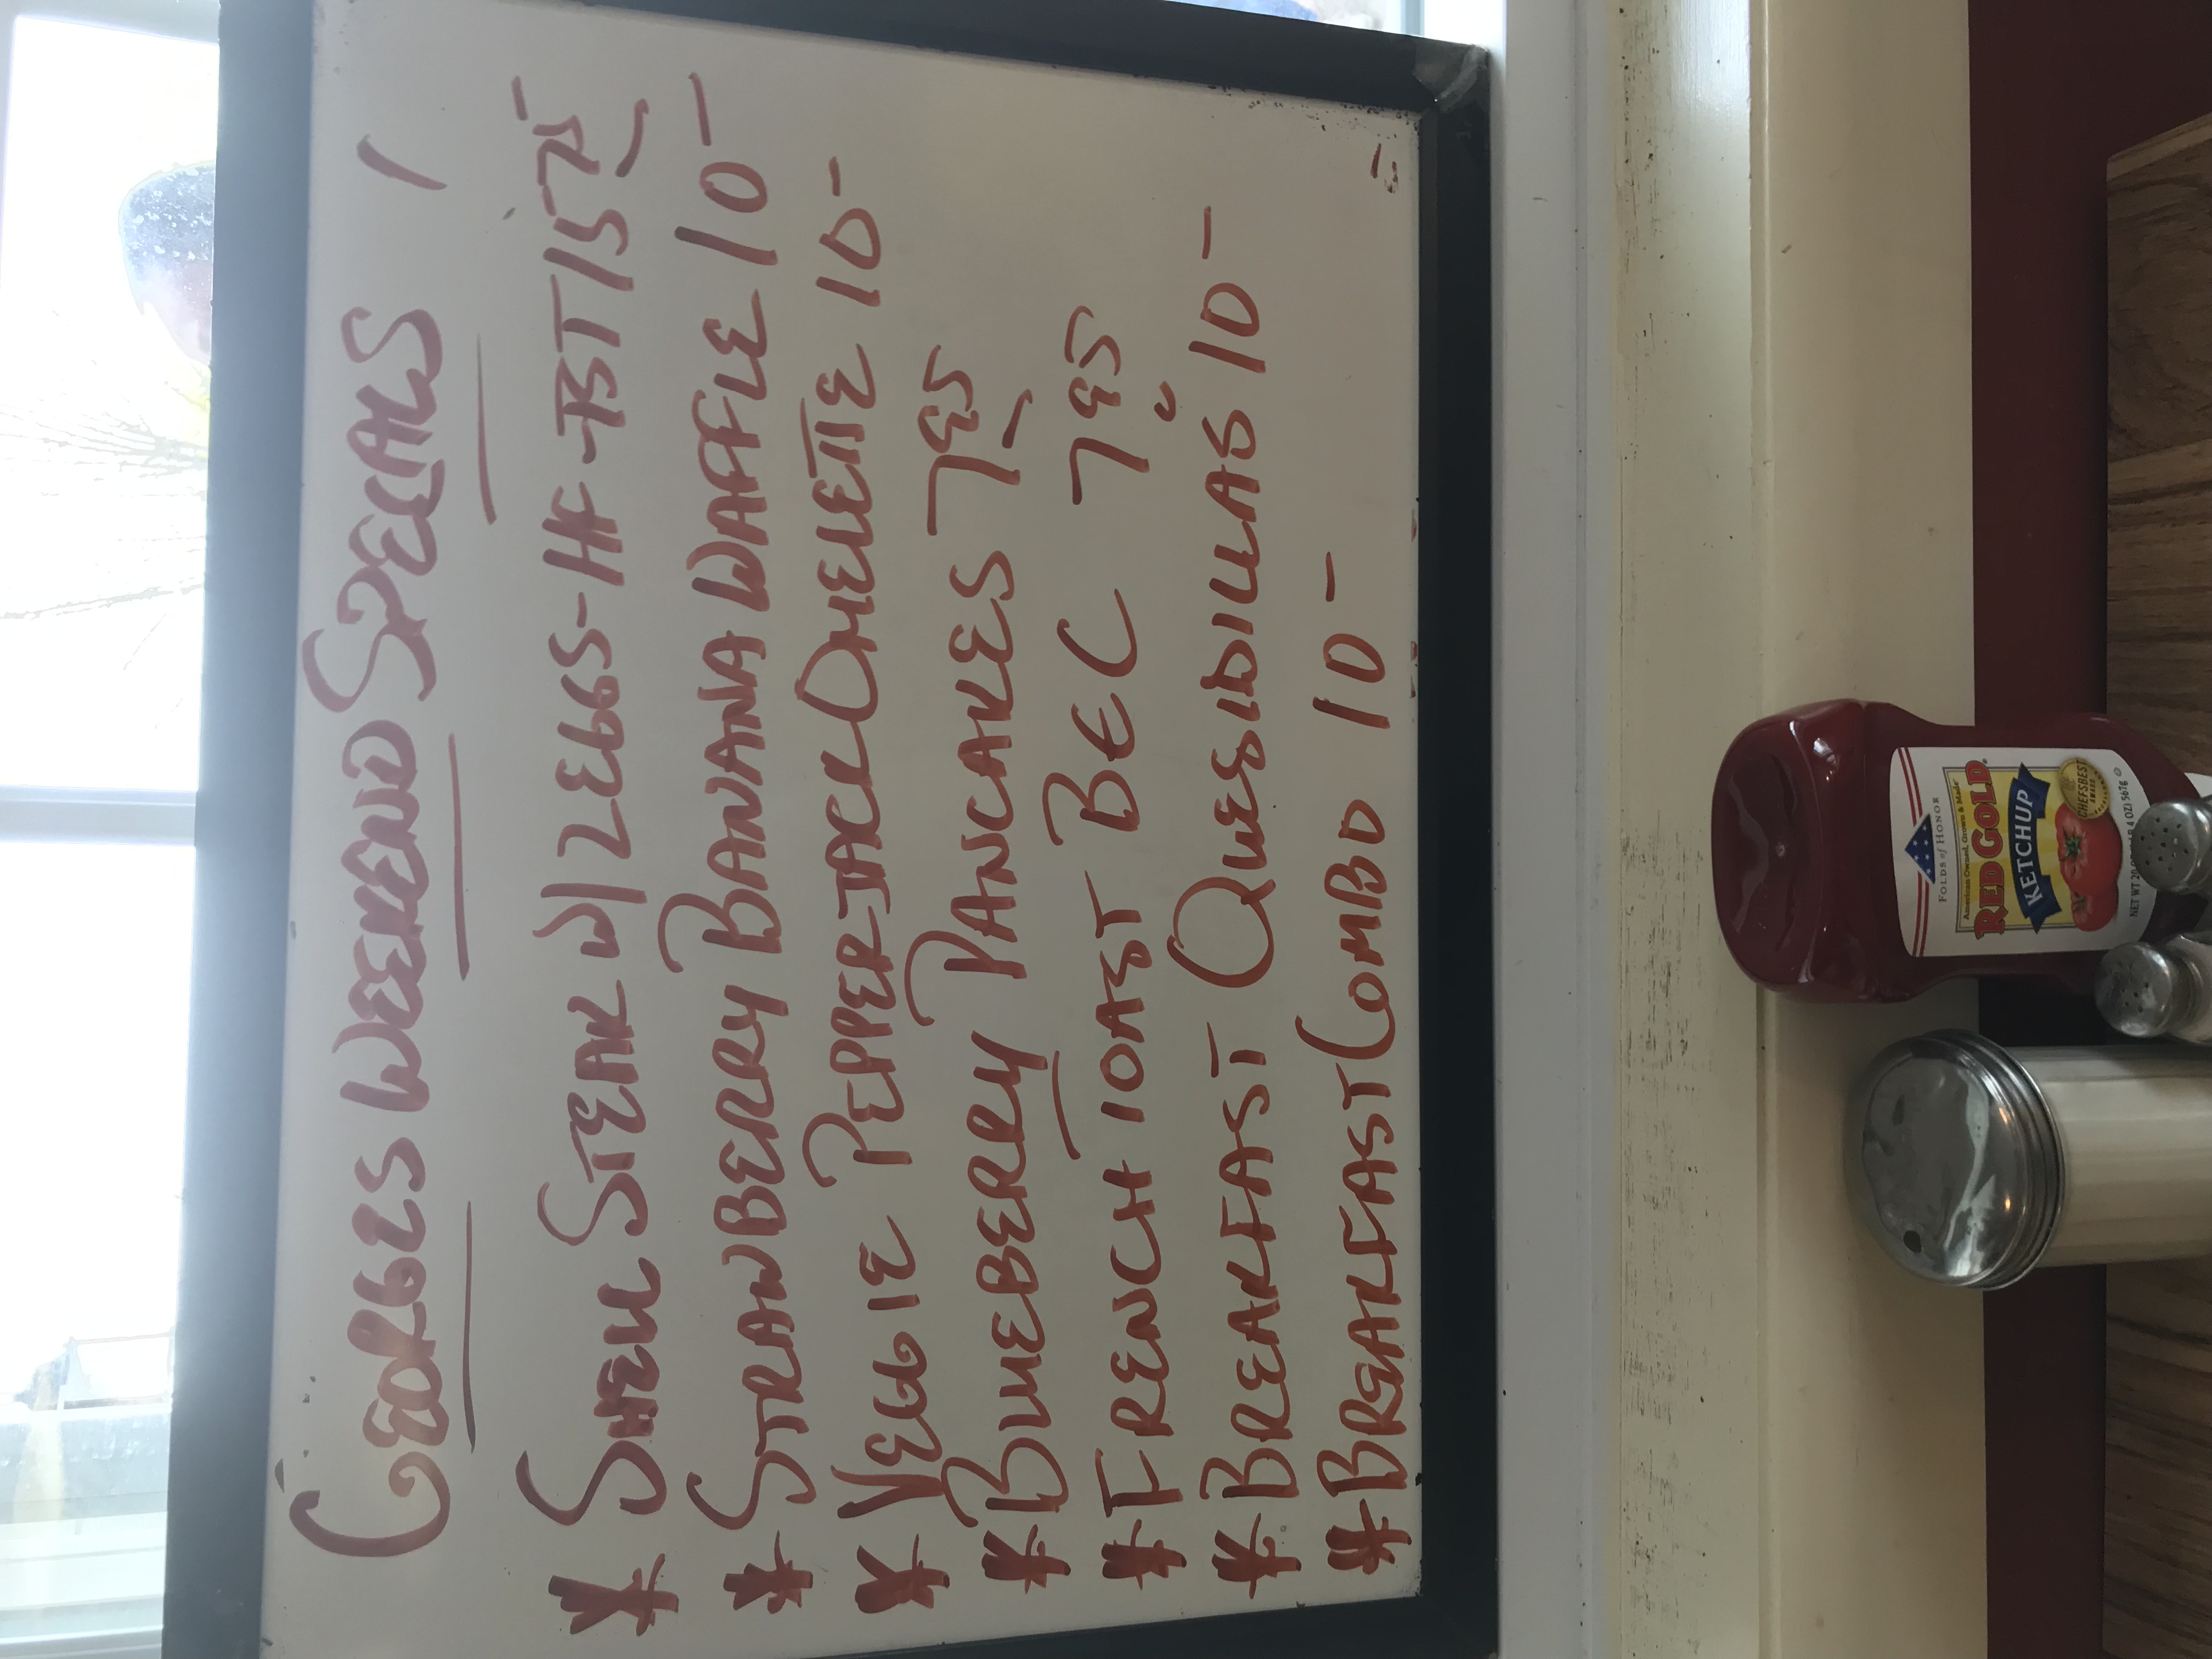 GEORGES WEEKEND SPECIALS
* SHELL STEAK W/ 2 EGGS - HF - TST 15 75
* STRAWBERRY BANANA WAFFLE 10 -
* VEGGIE PEPPERJACK OMELETTE 10 -
* BLUEBERRY PANCAKES 7 95
* FRENCH TOAST BEC 7 95
* BREAKFAST QUESIDILLAS 10 -
* BREAKFAST COMBO 10 -
FOLDS of HONOR
American Owned, Grown & Made
RED GOLD
KETCHUP
CHEFSBEST
AWARD
NET WT 20
4 OZ) 567g